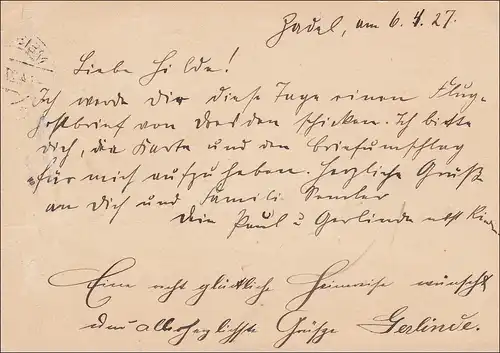 Zadel, am 6.4.27.
Liebe Hilde!
Ich werde Dir diese Tage einen Flug-
postbrief von Dresden schicken. Ich bitte
Dich, die Karte und den Briefumschlag
für mich aufzuheben. Herzliche Grüße
an Dich und Famili Semler
Dein Paul u Gerlinde nebst Kinder.
Eine recht glückliche Heimreise wünscht
und allerherzlichste Grüsze Gerlinde.